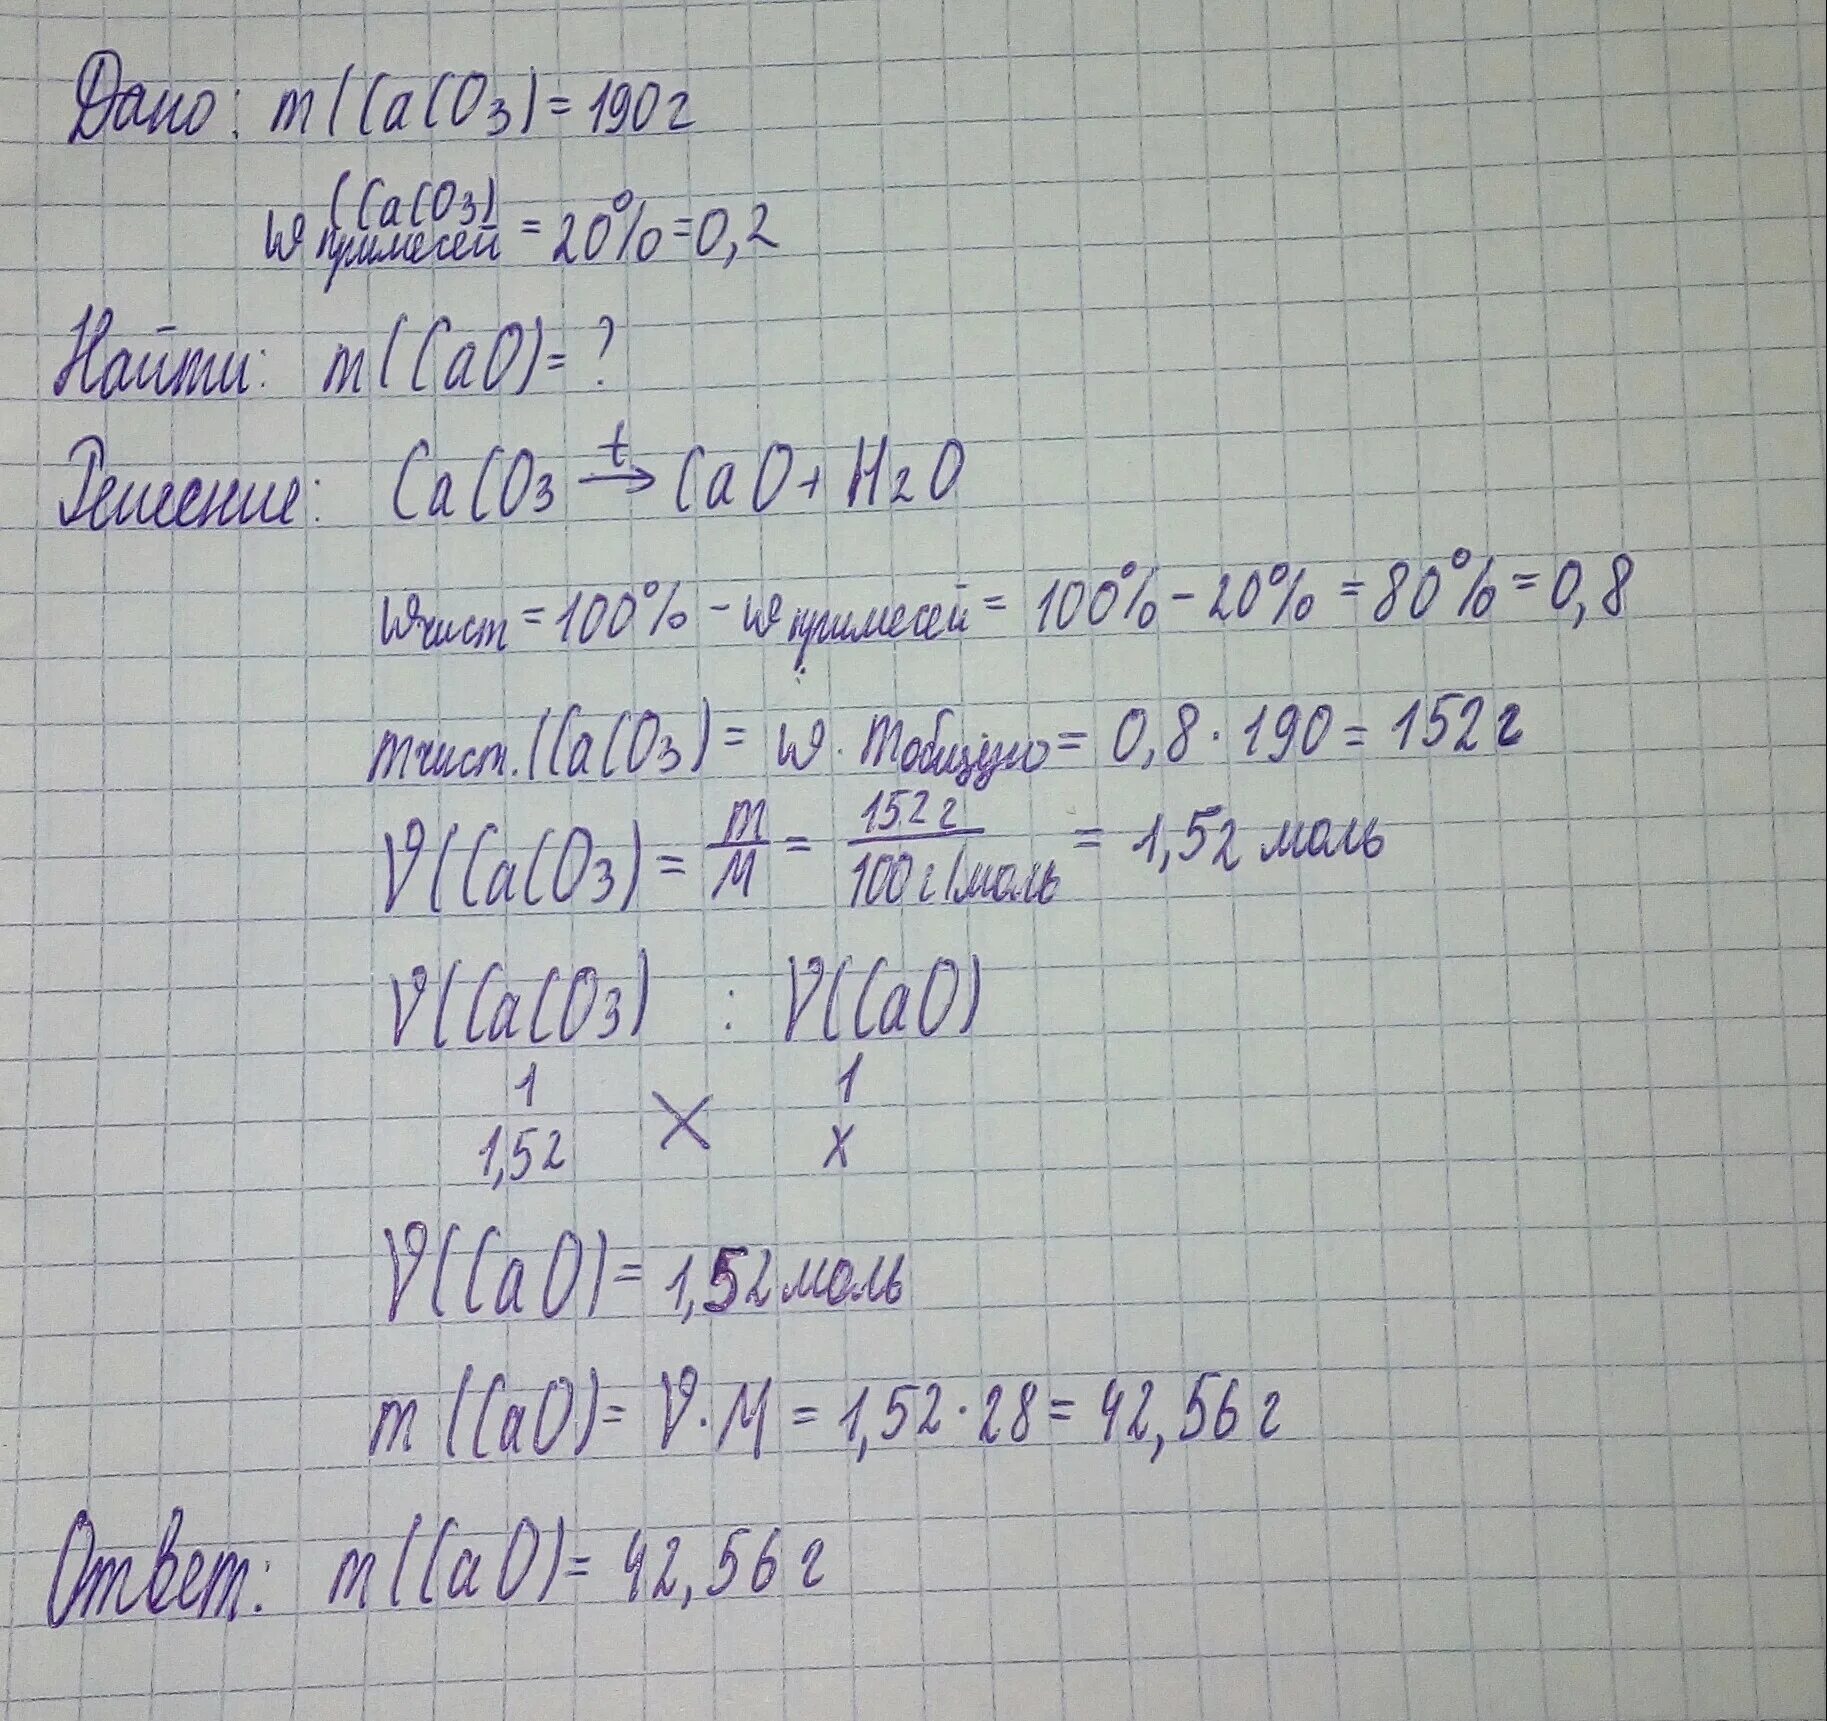 Дано: m(CaCO3) = 190 г
(CaCO3)
w примесей = 20% = 0,2
Найти: m(CaO) = ?
Решение: CaCO3 t→ CaO + H2O
w чист = 100% - w примесей = 100% - 20% = 80% = 0,8
m чист. (CaCO3) = w · m общую = 0,8 · 190 = 152 г
ν(CaCO3) = m/M = 152 г/100 г/моль = 1,52 моль
ν(CaCO3) : ν(CaO)
1 1
1,52 X x
ν(CaO) = 1,52 моль
m(CaO) = ν · M = 1,52 · 28 = 42,56 г
Ответ: m(CaO) = 42,56 г